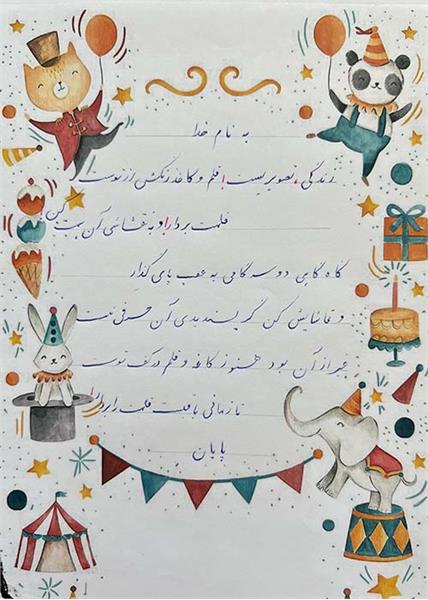 به نام خدا
زندگی، تصویریست! قلم و کاغذ رنگش از توست
قلمت بردار! و به نقاشی آن همت کن!
گاه گاهی دو سه گامی به عقب پای گذار
و تماشایش کن گر پسندیدی آن حرفی نیست
غیر از آن بود هنوز کاغذ و قلم در کف توست
تا زمانی باقیست قلمت را بردار!
پایان